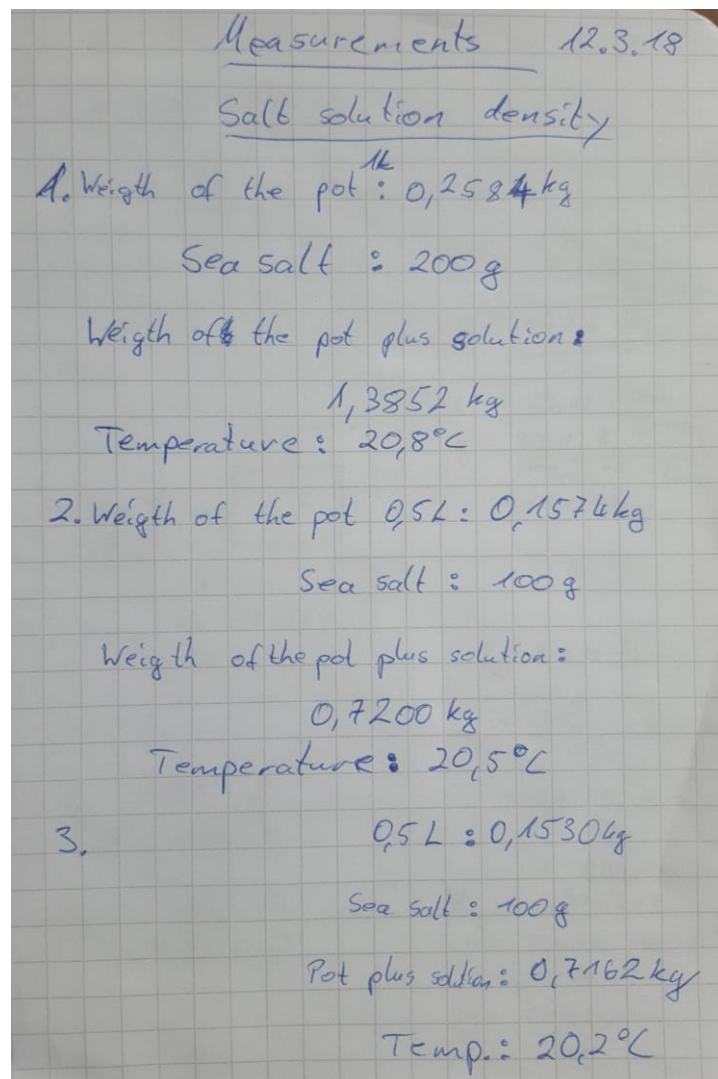 Measurements 12.3.18
Salt solution density
1L
1. Weigth of the pot : 0,2584 kg
Sea salt : 200 g
Weigth of the pot plus solution :
1,3852 kg
Temperature : 20,8°C
2. Weigth of the pot 0,5L : 0,1574 kg
Sea salt : 100 g
Weigth of the pot plus solution :
0,7200 kg
Temperature : 20,5°C
3. 0,5 L : 0,1530 kg
Sea salt : 100 g
Pot plus soldion : 0,7162 kg
Temp. : 20,2°C